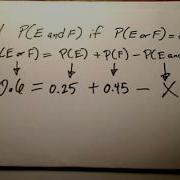 P(E and F) if P(E or F) =
(E or F) = P(E) + P(F) - P(E and
0.6 = 0.25 + 0.45 - X